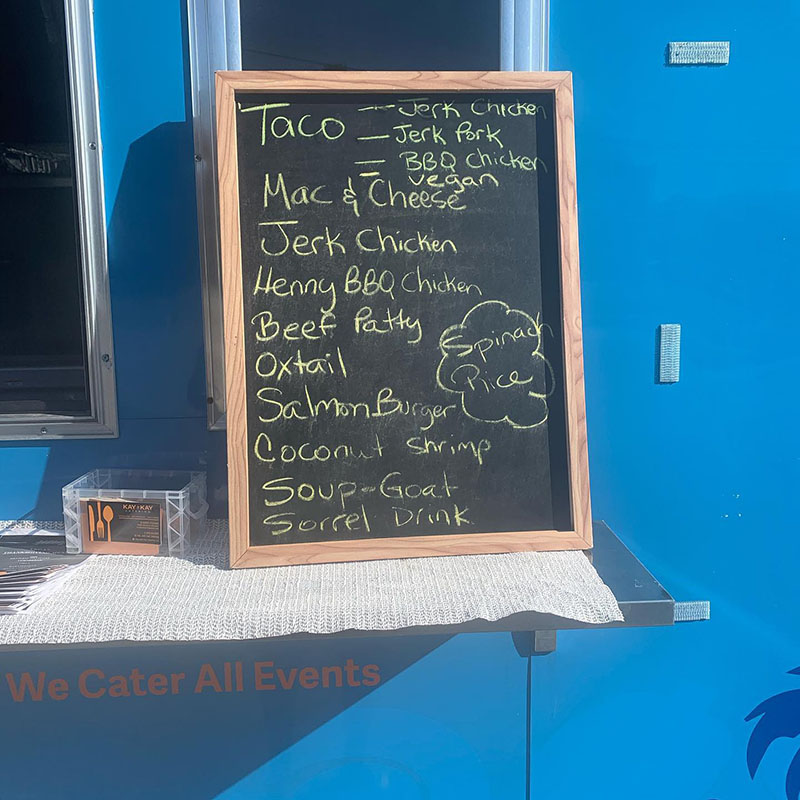 Taco — Jerk Chicken
— Jerk Pork
— BBQ Chicken
– vegan
Mac & Cheese
Jerk Chicken
Henny BBQ Chicken
Beef Patty
Spinach
Rice
Oxtail
Salmon Burger
Coconut Shrimp
Soup-Goat
Sorrel Drink
KAY & KAY
We Cater All Events